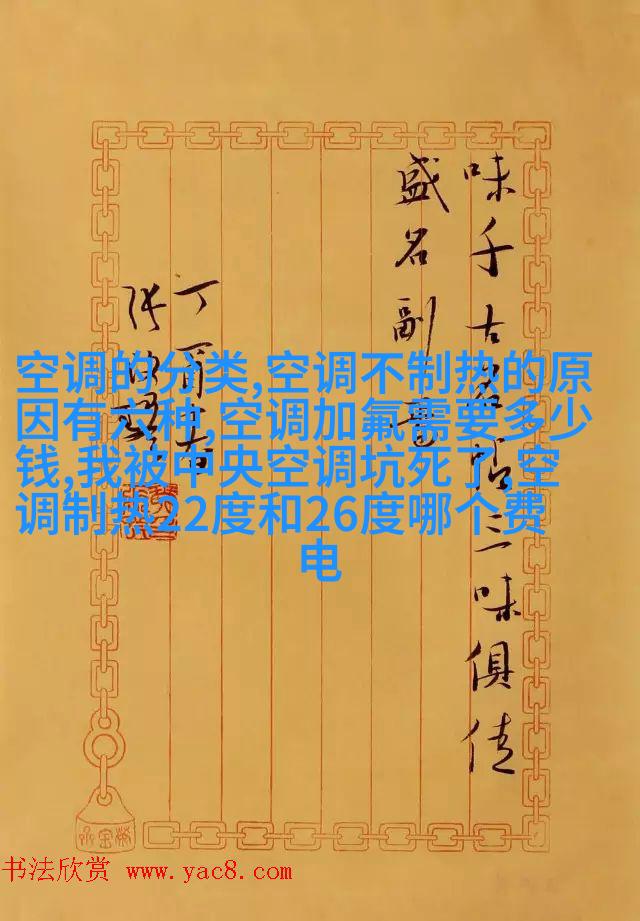 空调的分类,空调不制热的原
因有六种,空调加氟需要多少
钱,我被中央空调坑死了,空
调制热22度和26度哪个费
电
味千古名帖三味俱佳
盛名副
丁酉
张
书法欣赏 www.yac8.com